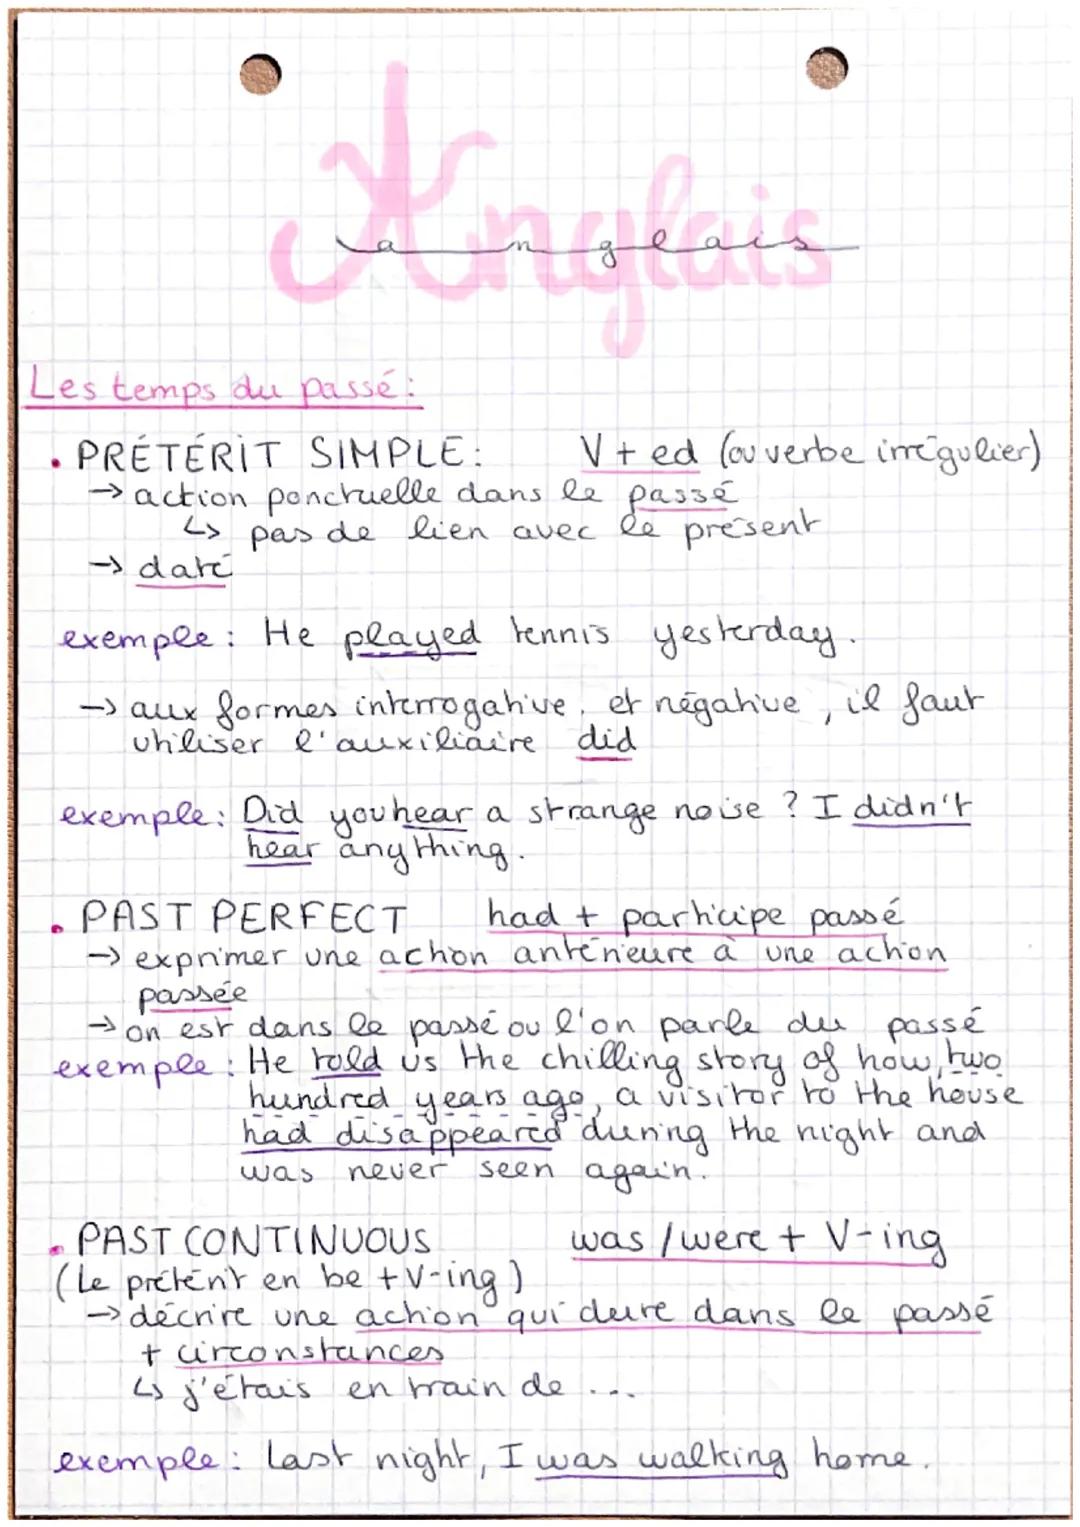 Anglais
anglais
Les temps du passé :
• PRÉTÉRIT SIMPLE : V + ed (ou verbe irrégulier)
→ action ponctuelle dans le passé
↳ pas de lien avec le présent
→ daté
exemple : He played tennis yesterday.
→ aux formes interrogative. et négative, il faut
utiliser l'auxiliaire did
exemple : Did you hear a strange noise ? I didn't
hear anything.
• PAST PERFECT had + participe passé
→ exprimer une action antérieure à une action
passée
→ on est dans le passé ou l'on parle du passé
exemple : He told us the chilling story of how, two
hundred years ago, a visitor to the house
had disappeared during the night and
was never seen again.
• PAST CONTINUOUS was / were + V-ing
(Le prétérit en be + V-ing)
→ décrire une action qui dure dans le passé
+ circonstances
↳ j'étais en train de ...
exemple : Last night, I was walking home.